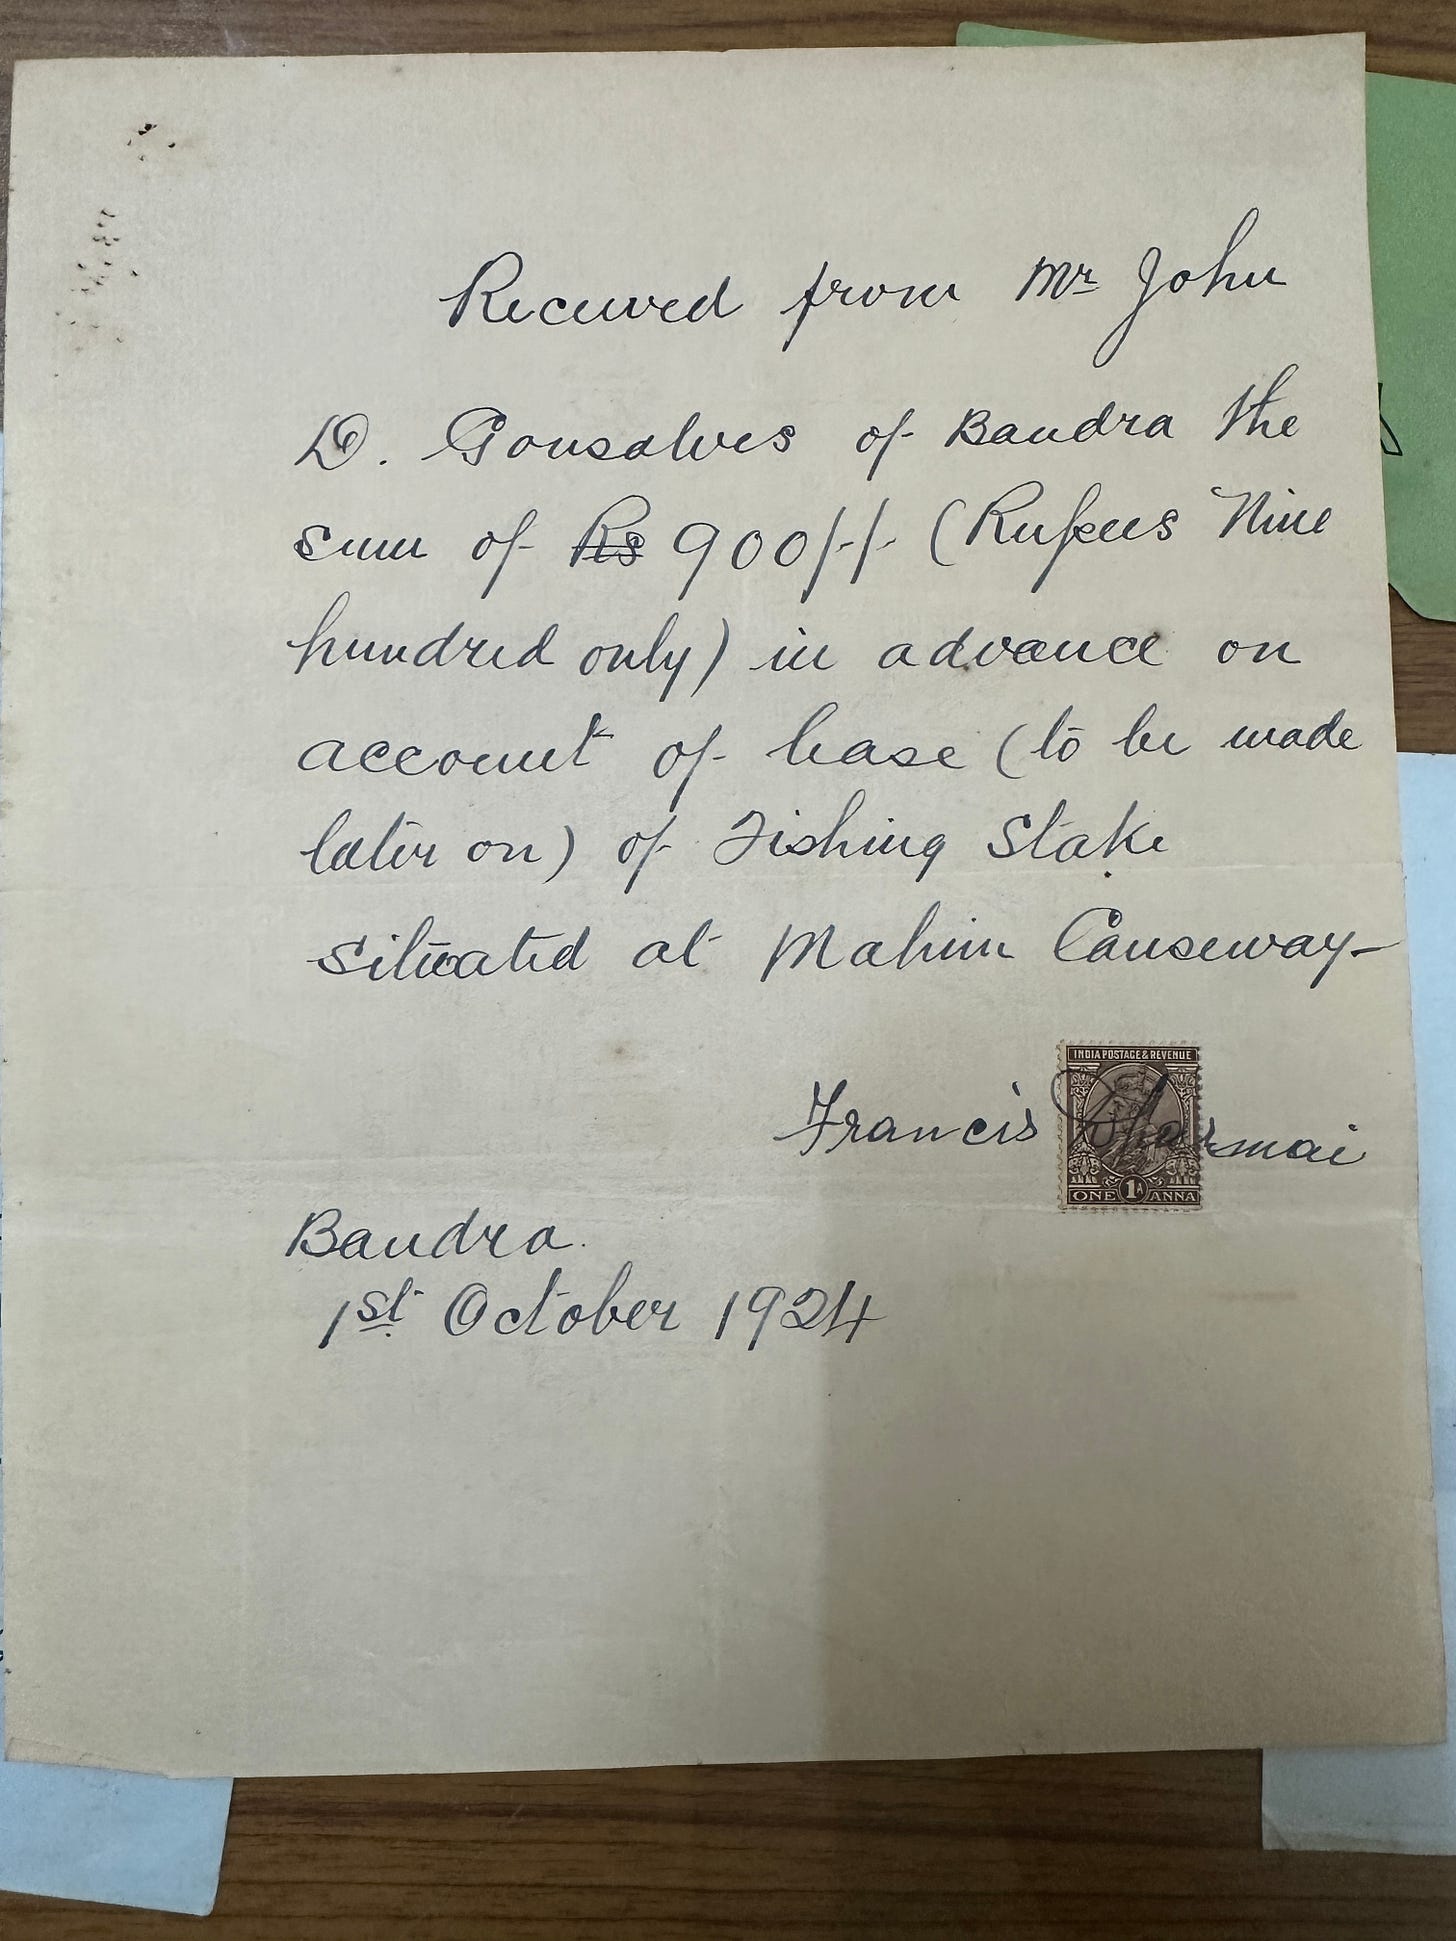 Received from Mr John
D. Gonsalves of Bandra the
sum of Rs 900/-/- (Rupees Nine
hundred only) in advance on
account of lease (to be made
later on) of Fishing Stake
situated at Mahim Causeway-
INDIA POSTAGE & REVENUE
Francis
ONE 1A ANNA
Bandra.
1st October 1924